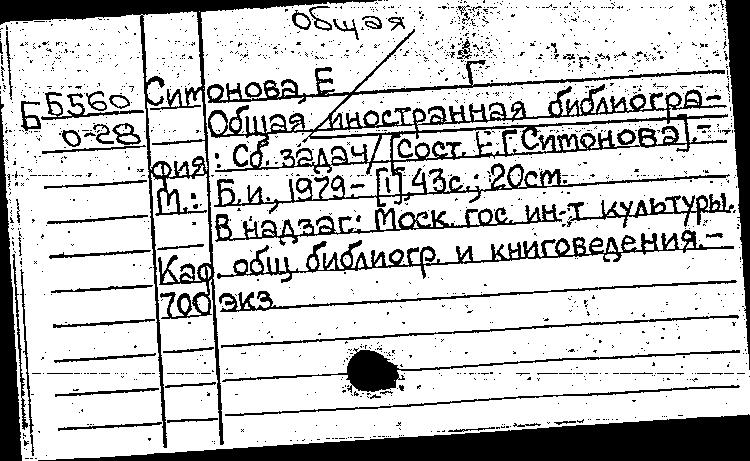 общая
Ситонова, Е Г
Б 5560
0-28
Общая иностранная библиогра-
фия : Сб. задач / [Сост. Е.Г.Ситонова].-
М.: Б.и., 1979.- [1], 43с.; 20cm.
В надзаг: Моск. гос. ин-т культуры.
Каф. общ. библиогр. и книговедения.-
700 экз